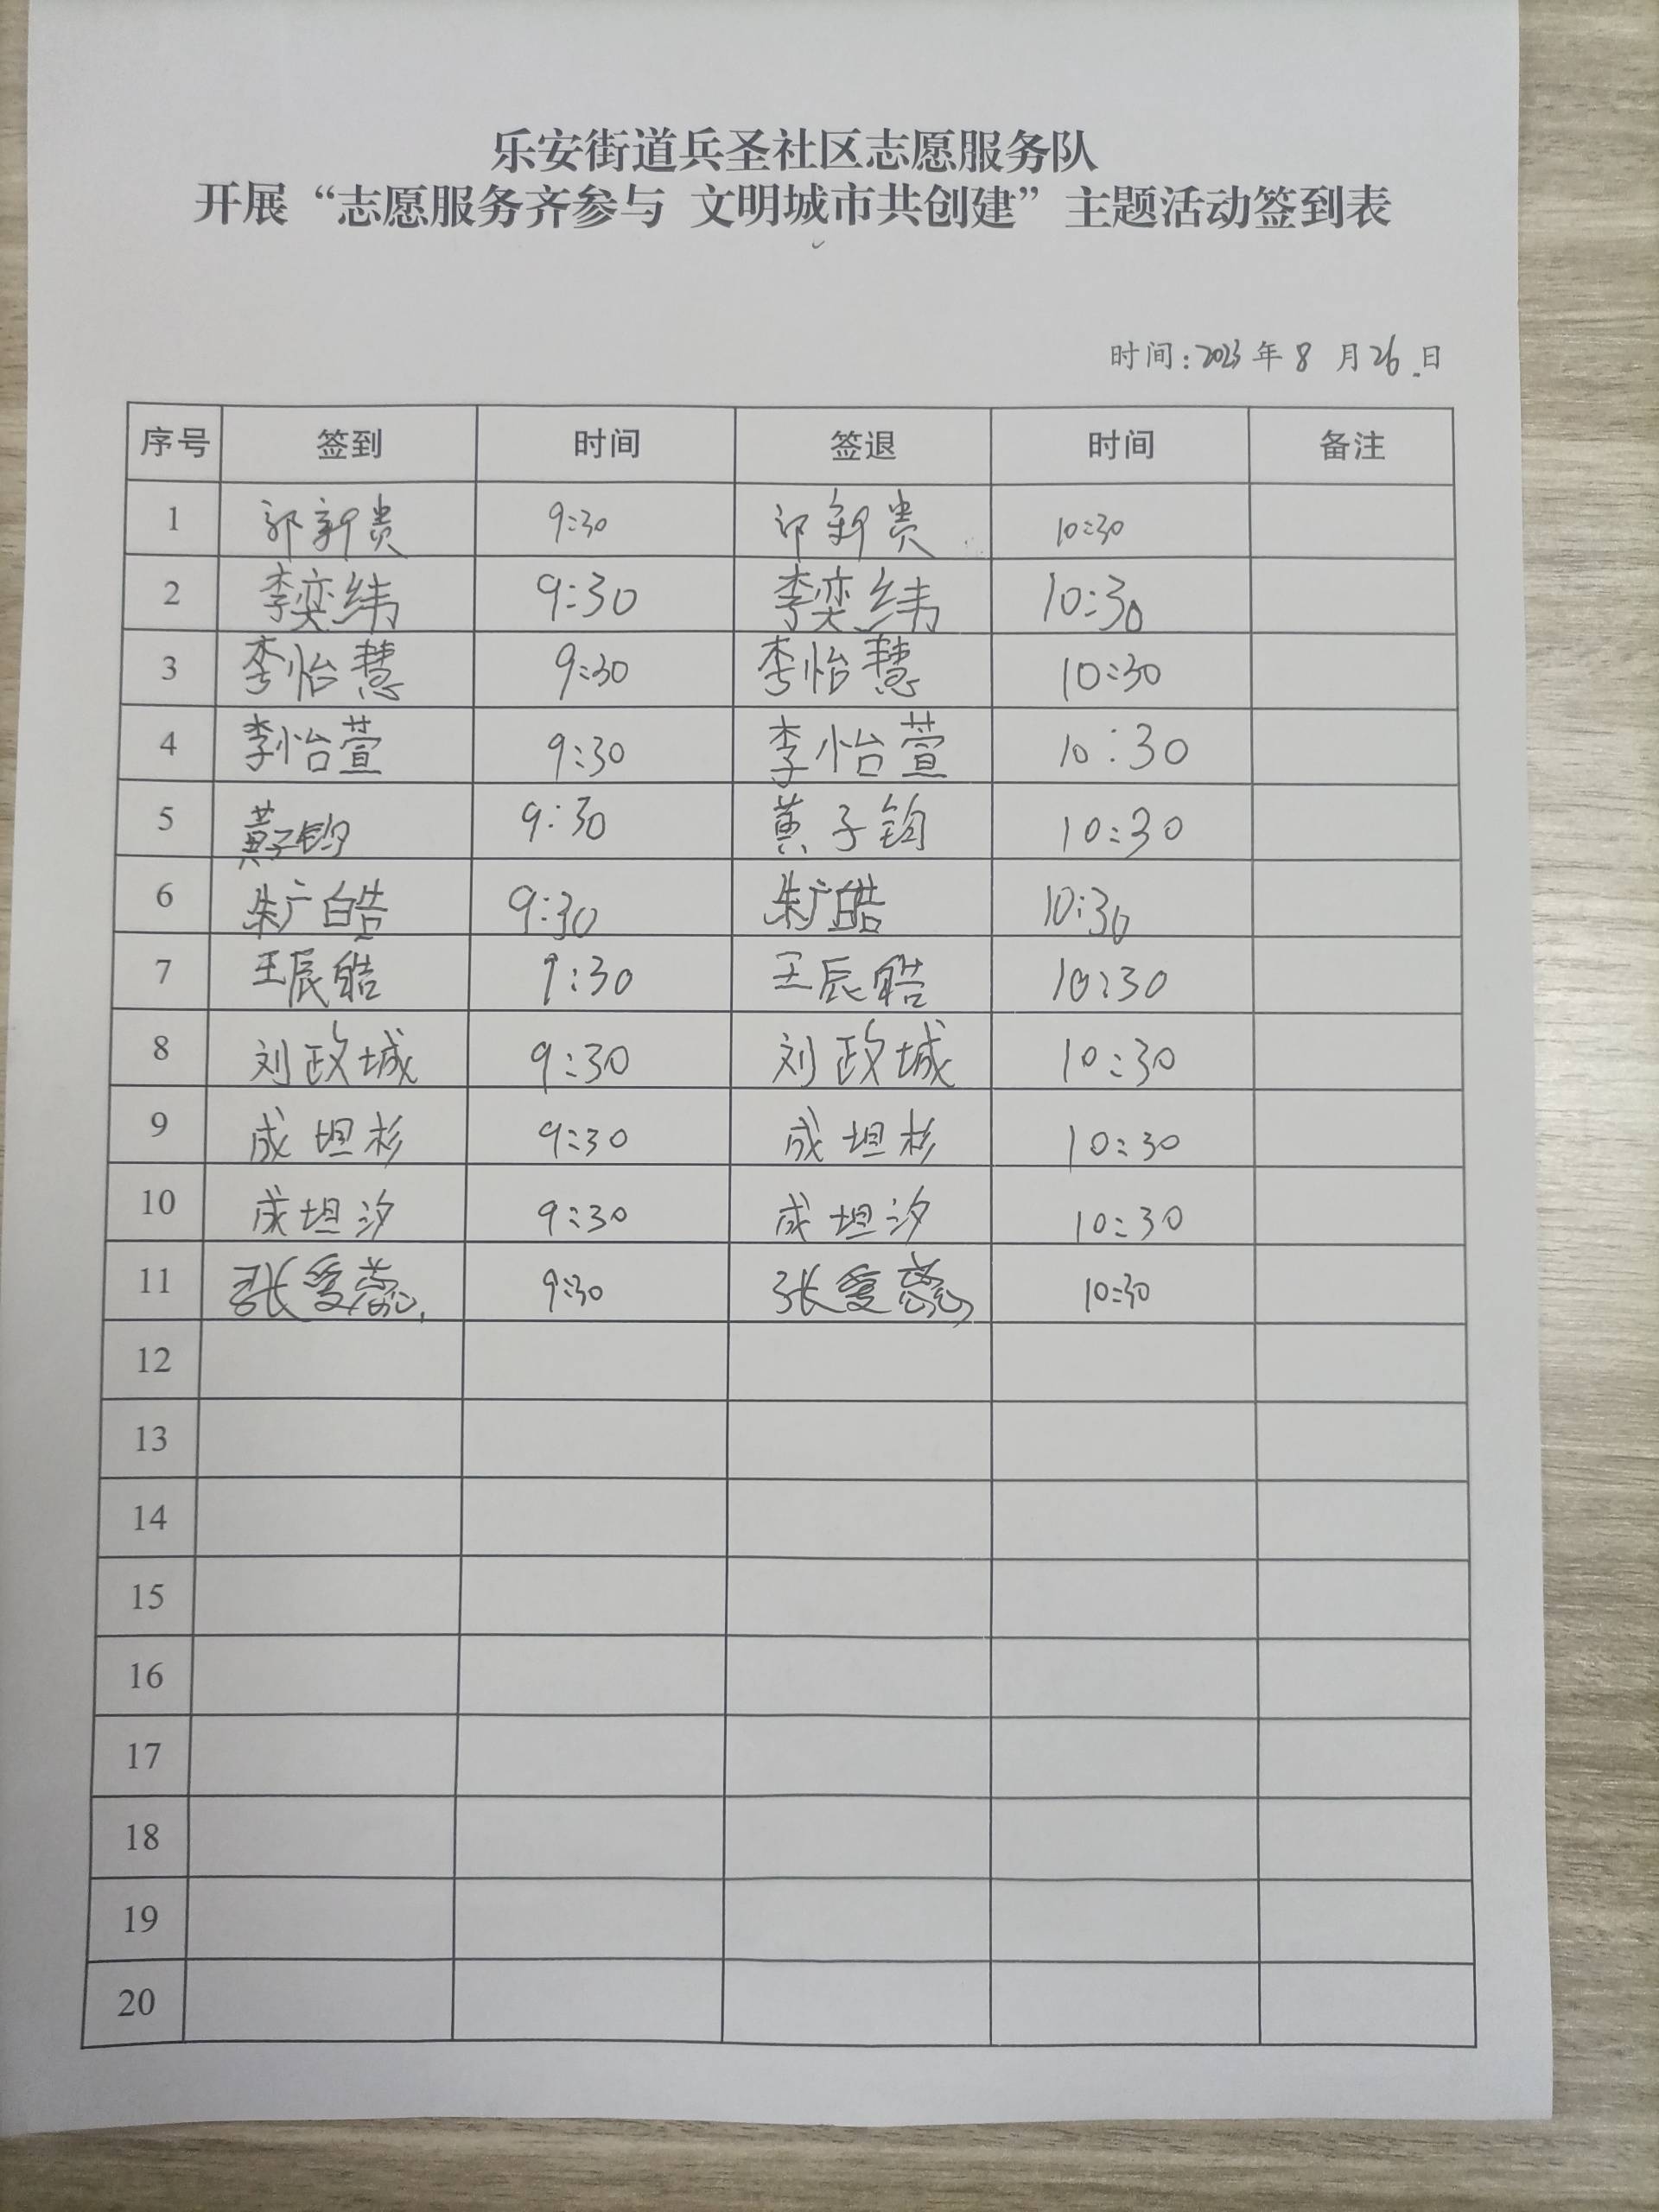 乐安街道兵圣社区志愿服务队
开展“志愿服务齐参与 文明城市共创建”主题活动签到表
时间:2023年8月26日
序号 签到 时间 签退 时间 备注
1 郭新贵 9:30 郭新贵 10:30
2 李奕纬 9:30 李奕纬 10:30
3 李怡慧 9:30 李怡慧 10:30
4 李怡萱 9:30 李怡萱 10:30
5 黄子钧 9:30 黄子钧 10:30
6 朱广皓 9:30 朱广皓 10:30
7 王辰皓 9:30 王辰皓 10:30
8 刘政城 9:30 刘政城 10:30
9 成坦杉 9:30 成坦杉 10:30
10 成坦汐 9:30 成坦汐 10:30
11 张爱蕊 9:30 张爱蕊 10:30
12
13
14
15
16
17
18
19
20